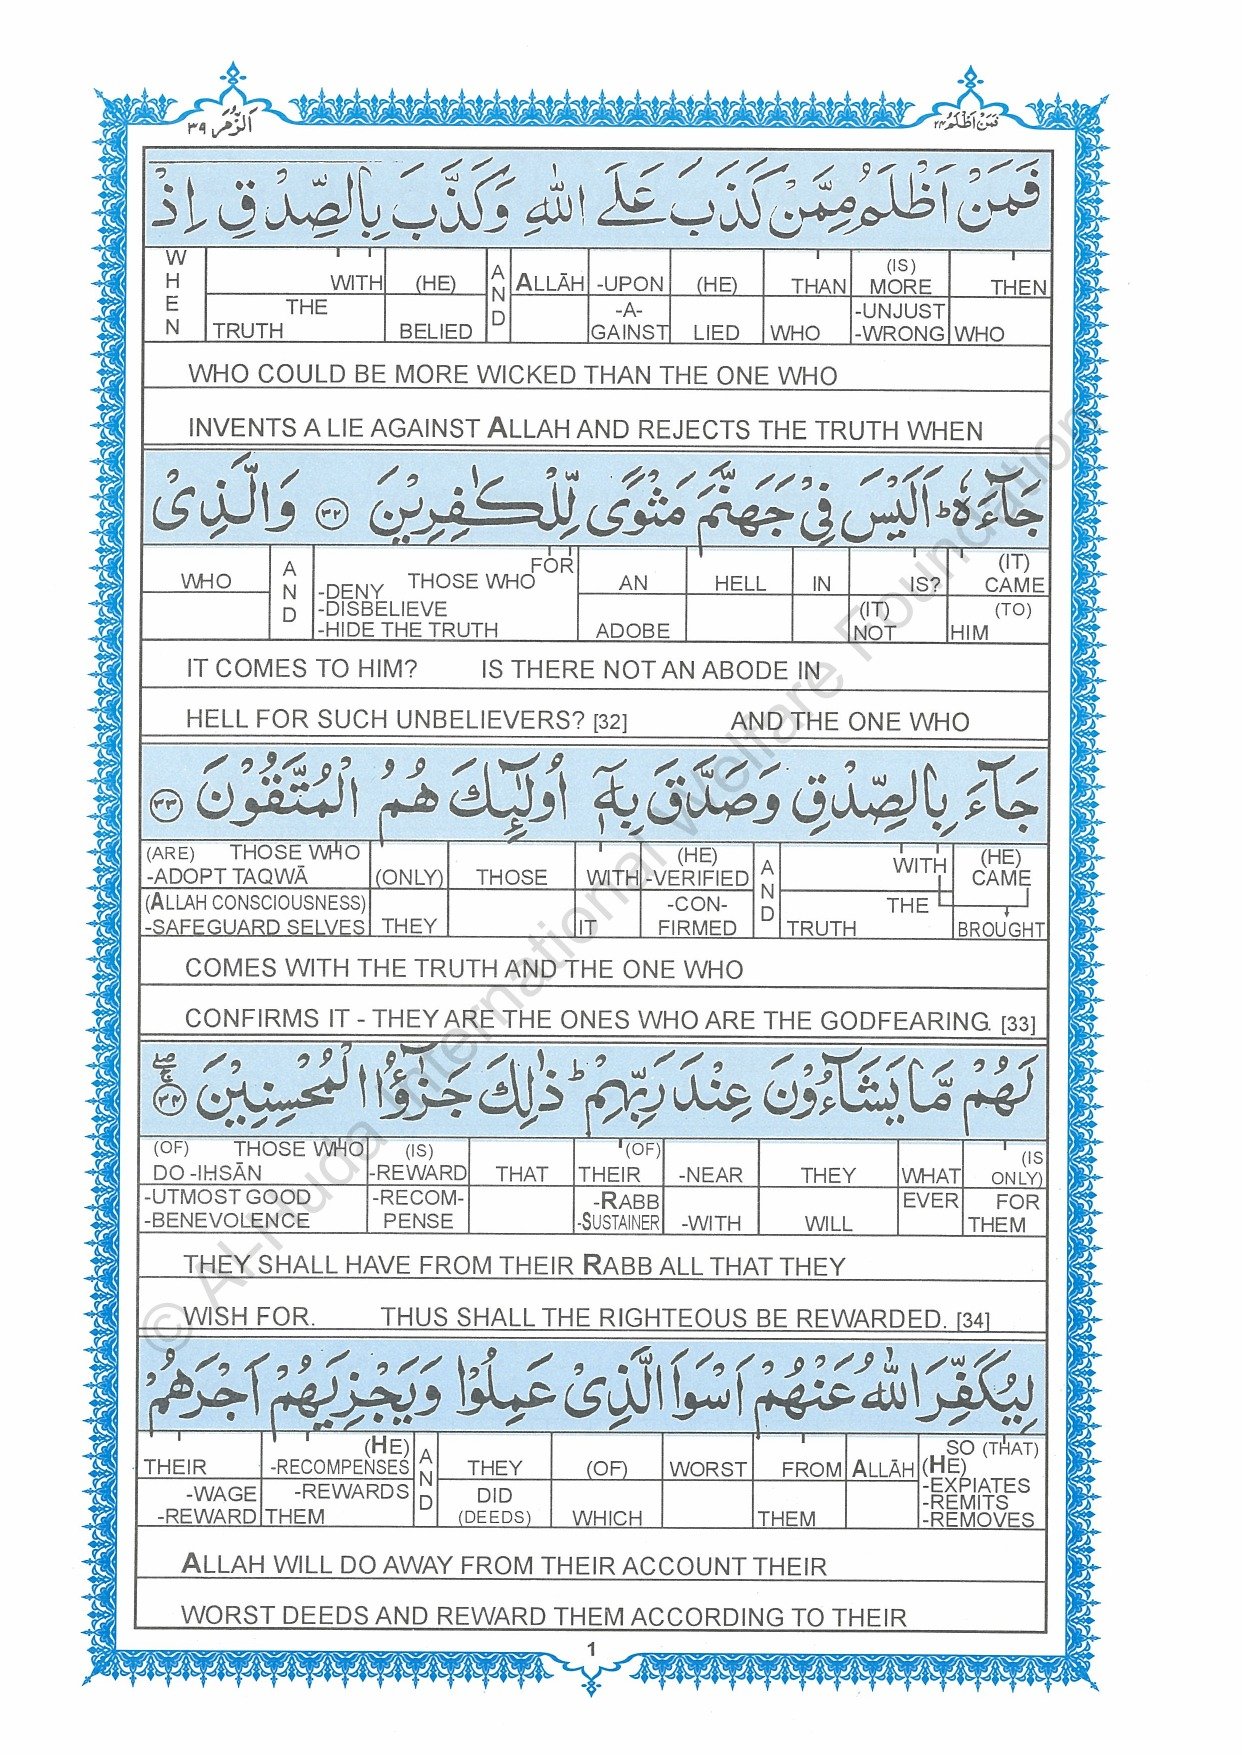 الزُّمَر ٣٩
فَمَنْ اَظْلَمُ ٢٤
فَمَنْ اَظْلَمُ مِمَّنْ كَذَبَ عَلَى اللّٰهِ وَكَذَّبَ بِالصِّدْقِ اِذْ
WHEN | WITH | (HE) | AND | ALLĀH | -UPON | (HE) | THAN | (IS) MORE | THEN
THE TRUTH | BELIED | -A-GAINST | LIED | WHO | -UNJUST -WRONG | WHO
WHO COULD BE MORE WICKED THAN THE ONE WHO
INVENTS A LIE AGAINST ALLAH AND REJECTS THE TRUTH WHEN
جَآءَهٗ ؕ اَلَيْسَ فِيْ جَهَنَّمَ مَثْوًى لِّلْكٰفِرِيْنَ ﴿٣٢﴾ وَالَّذِيْ
WHO | AND | FOR THOSE WHO | AN | HELL | IN | IS? | (IT) CAME
-DENY -DISBELIEVE -HIDE THE TRUTH | ADOBE | (IT) NOT | (TO) HIM
IT COMES TO HIM? IS THERE NOT AN ABODE IN
HELL FOR SUCH UNBELIEVERS? [32] AND THE ONE WHO
جَآءَ بِالصِّدْقِ وَصَدَّقَ بِهٖٓ اُولٰٓئِكَ هُمُ الْمُتَّقُوْنَ ﴿٣٣﴾
(ARE) THOSE WHO -ADOPT TAQWĀ | (ONLY) | THOSE | WITH | (HE) -VERIFIED | AND | WITH | (HE) CAME
(ALLAH CONSCIOUSNESS) -SAFEGUARD SELVES | THEY | IT | -CON-FIRMED | THE TRUTH | BROUGHT
COMES WITH THE TRUTH AND THE ONE WHO
CONFIRMS IT - THEY ARE THE ONES WHO ARE THE GODFEARING. [33]
لَهُمْ مَّا يَشَآءُوْنَ عِنْدَ رَبِّهِمْ ؕ ذٰلِكَ جَزٰٓؤُا الْمُحْسِنِيْنَ ﴿٣٤﴾
(OF) THOSE WHO DO -IHSĀN | (IS) -REWARD | THAT | (OF) THEIR | -NEAR | THEY | WHAT | (IS ONLY)
-UTMOST GOOD -BENEVOLENCE | -RECOM-PENSE | -RABB -SUSTAINER | -WITH | WILL | EVER | FOR THEM
THEY SHALL HAVE FROM THEIR RABB ALL THAT THEY
WISH FOR. THUS SHALL THE RIGHTEOUS BE REWARDED. [34]
لِيُكَفِّرَ اللّٰهُ عَنْهُمْ اَسْوَاَ الَّذِيْ عَمِلُوْا وَيَجْزِيَهُمْ اَجْرَهُمْ
THEIR | (HE) -RECOMPENSES | AND | THEY | (OF) | WORST | FROM | ALLĀH | SO (THAT) (HE) -EXPIATES -REMITS -REMOVES
-WAGE -REWARD | -REWARDS THEM | DID (DEEDS) | WHICH | THEM
ALLAH WILL DO AWAY FROM THEIR ACCOUNT THEIR
WORST DEEDS AND REWARD THEM ACCORDING TO THEIR
1
© Al-Huda International Welfare Foundation